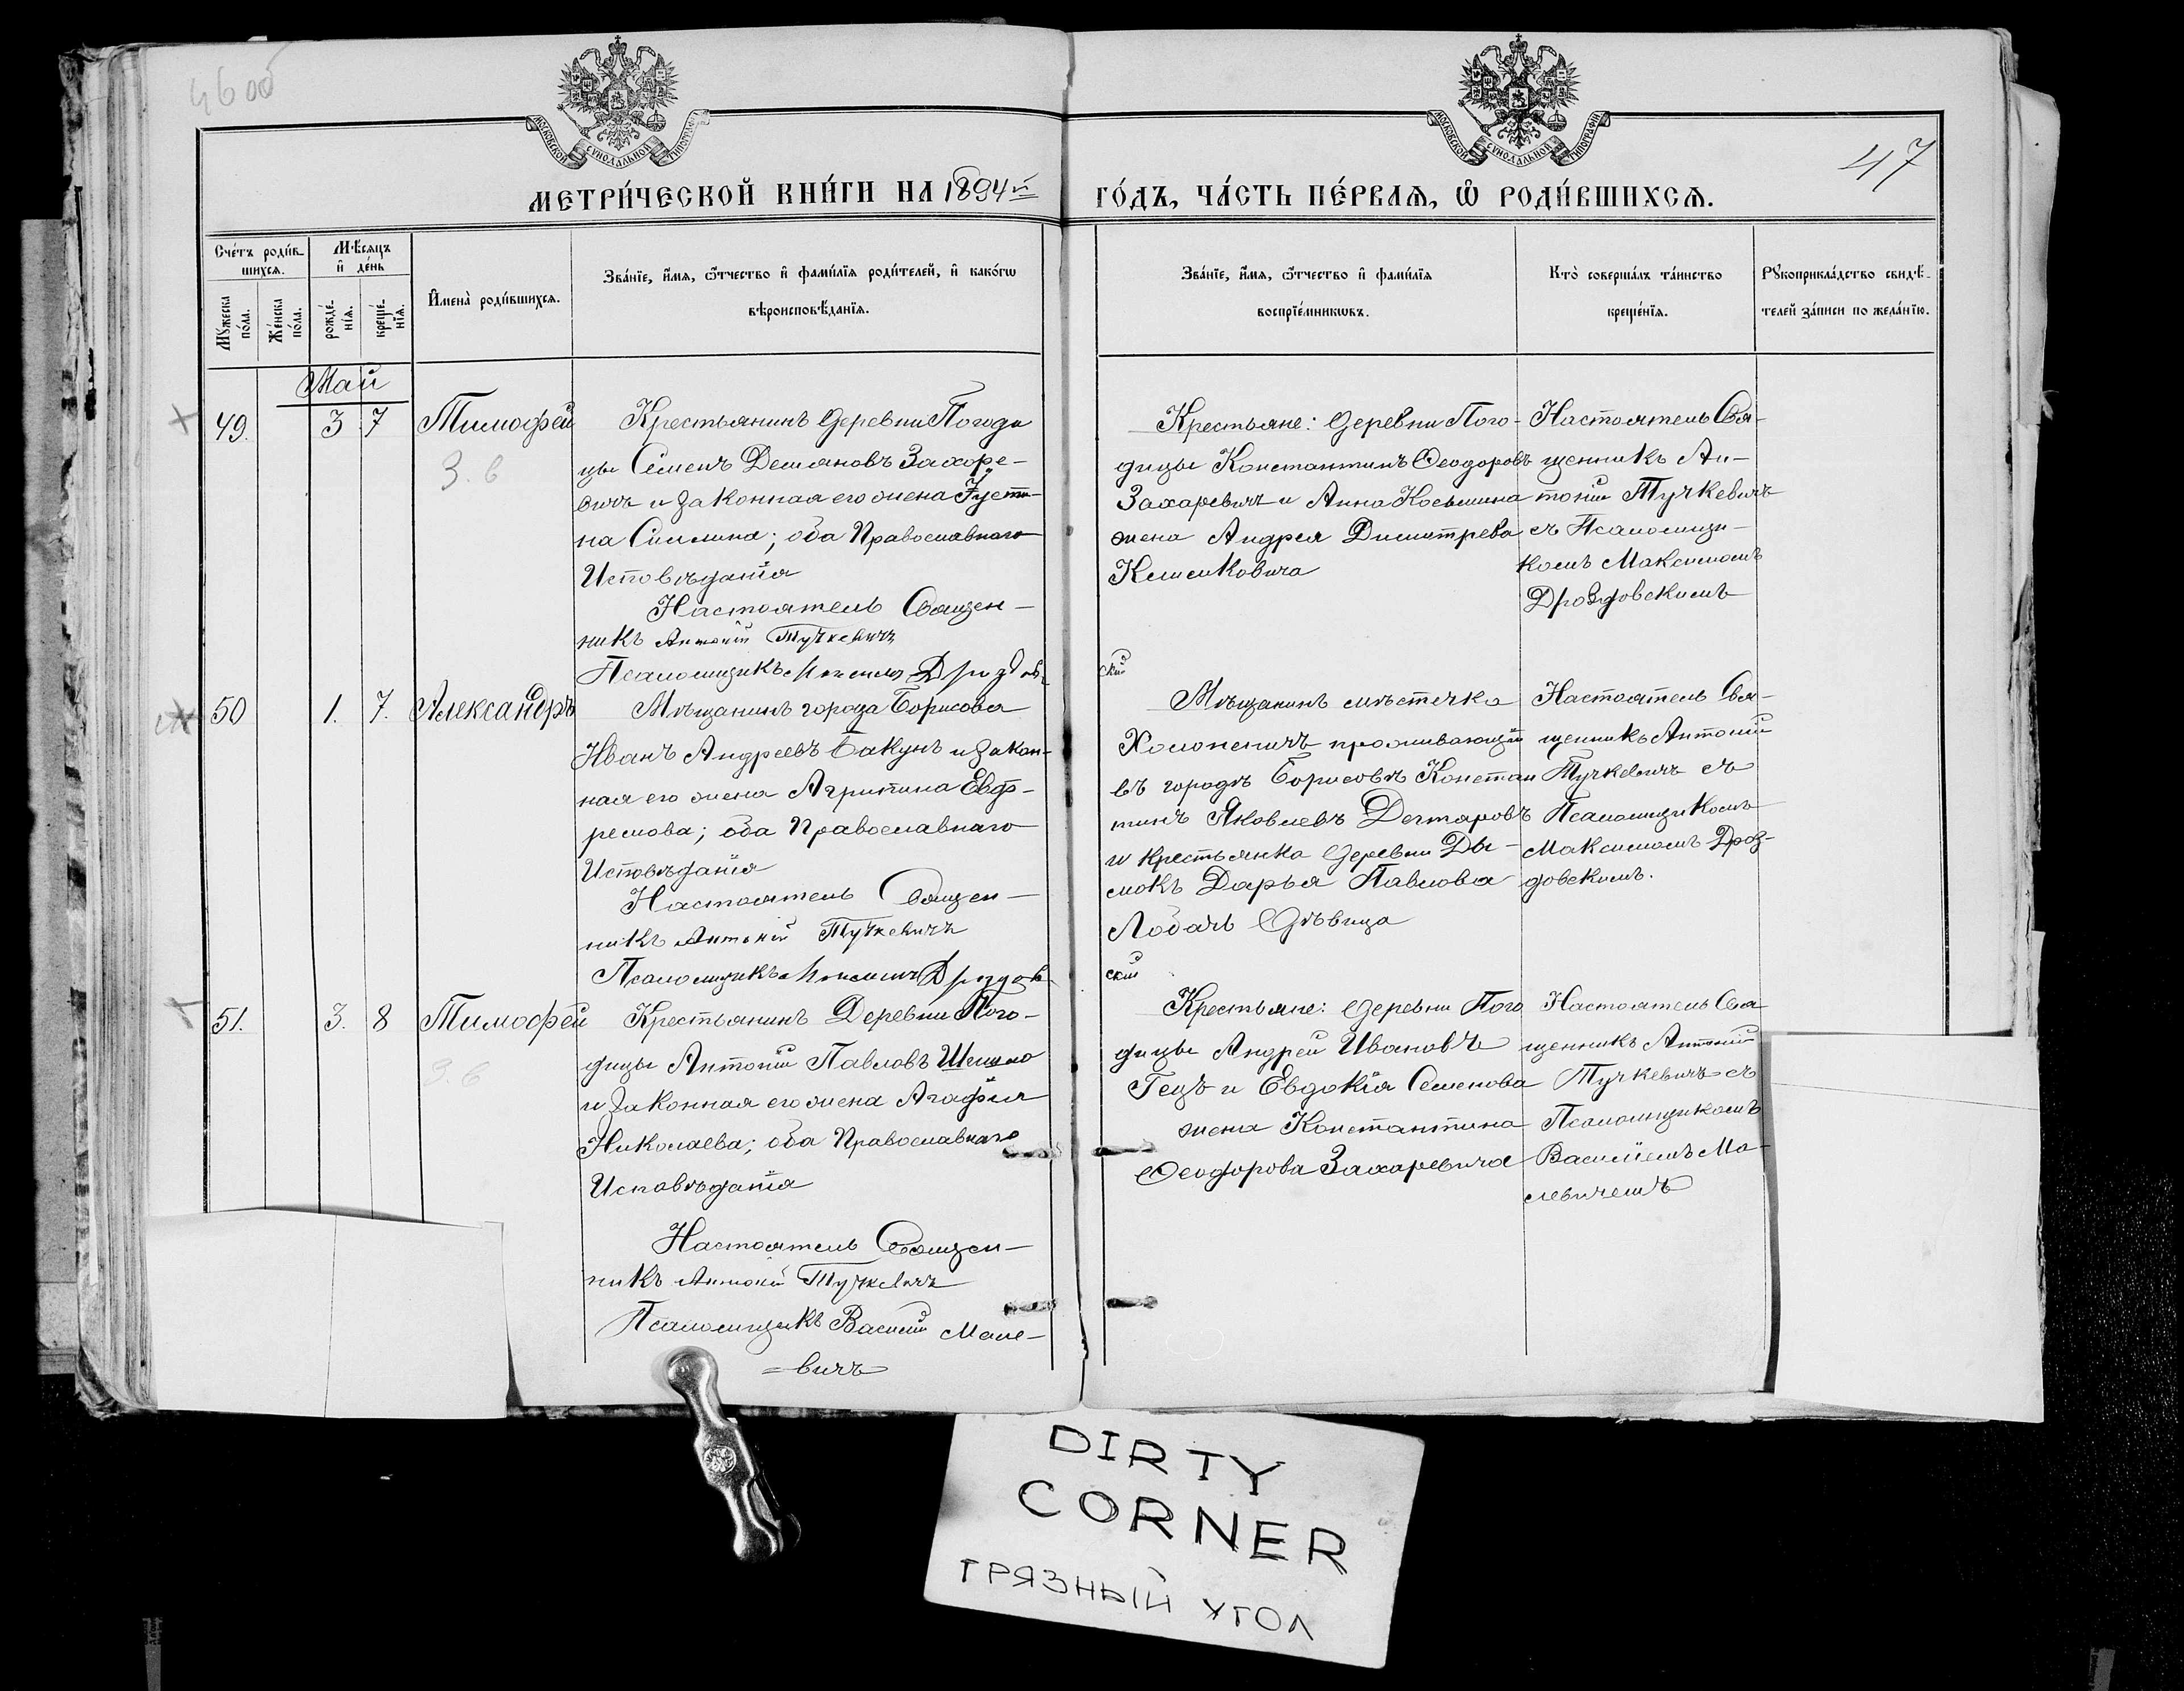 46 об
47
МОСКОВСКОЙ СѴНОДАЛЬНОЙ ТИПОГРАФІИ
МОСКОВСКОЙ СѴНОДАЛЬНОЙ ТИПОГРАФІИ
МЕТРИ́ЧЕСКОЙ КНИ́ГИ НА 1894й
ГО́ДЪ, ЧА́СТЬ ПЕ́РВАѦ, Ѽ РОДИ́ВШИХСѦ.
Сче́тъ роди́в-
шихсѧ.
Мꙋ́жеска
по́ла.
Же́нска
по́ла.
Мѣ́сяцъ
и҆ де́нь
рожде́-
нїѧ.
креще́-
нїѧ.
И҆мена̀ роди́вшихсѧ.
Зва́нїе, и҆́мѧ, ѻ҆́тчество и҆ фами́лїѧ роди́телей, и҆ како́гѡ
вѣроисповѣ́данїѧ.
Зва́нїе, и҆́мѧ, ѻ҆́тчество и҆ фами́лїѧ
воспрїе́мникѡвъ.
Кто̀ соверша́лъ та́инство
креще́нїѧ.
Рꙋкоприкла́дство свидѣ́-
телей за́писи по жела́нїю.
Май
49. 3 7 Тимофей
З. в
Крестьянинъ деревни Погоди
цы Симеонъ Демьяновъ Захаре-
вичъ и законная его жена Іусти-
на Симеина; оба Православнаго
Исповѣданія
Настоятель Священ-
никъ Антоній Тучкевичъ
Псаломщикъ Максимъ Дроздов-
Крестьяне: деревни Пого-
дицы Константинъ Ѳеодоровъ
Захаревичъ и Анна Косьмина
жена Андрея Димитрева
Клименковича
скій
Настоятель Свя-
щенникъ Ан-
тоній Тучкевичъ
съ Псаломщи-
комъ Максимомъ
Дроздовскимъ
50 1. 7. Александръ
Мѣщанинъ города Борисова
Иванъ Андреевъ Бакунъ и закон-
ная его жена Агрипина Евф-
ремова; оба Православнаго
Исповѣданія
Настоятель Священ-
никъ Антоній Тучкевичъ
Псаломщикъ Максимъ Дроздов
Мѣщанинъ мѣстечка
Холопеничъ проживающій
въ городѣ Борисовѣ Констан
тинъ Яковлевъ Дегтяровъ
и крестьянка деревни Ды-
мокъ Дарья Павлова
Лобачъ дѣвица
скій
Настоятель Свя-
щенникъ Антоній
Тучкевичъ съ
Псаломщикомъ
Максимомъ Дроз-
довскимъ.
51. 3. 8 Тимофей
З. в
Крестьянинъ Деревни Пого-
дицы Антоній Павловъ Шешко
и законная его жена Агафія
Николаева; оба Православнаго
Исповѣданія
Настоятель Священ-
никъ Антоній Тучкевичъ
Псаломщикъ Василій Мале-
=вичъ
Крестьяне: деревни Пого
дицы Андрей Ивановъ
Гецъ и Евдокія Семенова
жена Константина
Ѳеодорова Захаревича
Настоятель Свя
щенникъ Антоній
Тучкевичъ съ
Псаломщикомъ
Василіемъ Ма-
левичемъ
DIRTY
CORNER
ГРЯЗНЫЙ УГОЛ